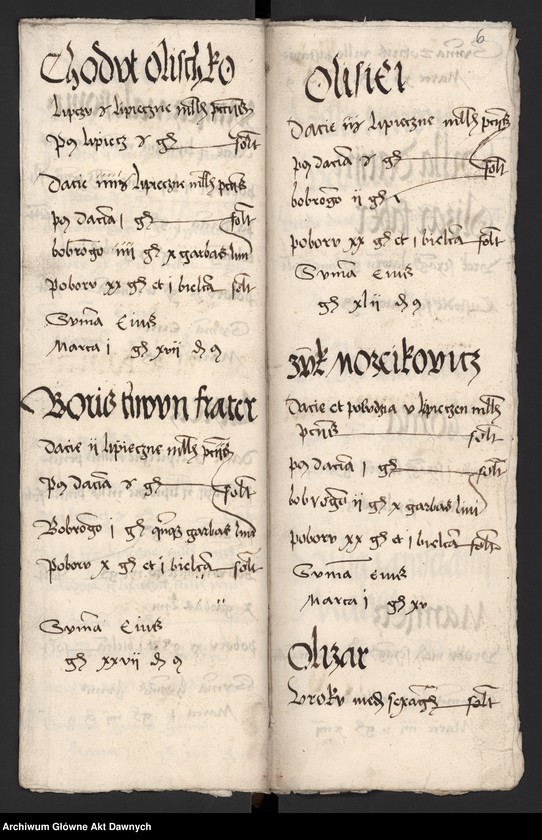 Chodvt olischko
Lipczv lipieczne mllh pctus
Po lipiecz gh solt
Dacie iiii lipieczne mllh pctus
po dacia i gh solt
bobrogo iiii gh x garbas lini
poborv xx gh et i bielca solt
Svma Eius
Marca i gh xvii
Boris frater
Dacie ii lipieczne mllh pctus
Po dacia gh solt
Bobrogo i gh garbas lini
poborv x gh et i bielca solt
Svma Eius
gh xxvii
6
Olisiei
Dacie iii lipieczne mllh pctus
po dacia gh solt
bobrogo ii gh
poborv xx gh et i bielca solt
Svma Eius
gh xlii
Nozcikovicz
Dacie et v lipieczen mllh
pctus solt
po dacia i gh solt
bobrogo ii gh x garbas lini
poborv xx gh et i bielca solt
Svma eius
Marca i gh xv
Olizar
Vrokv med solt
Archiwum Główne Akt Dawnych